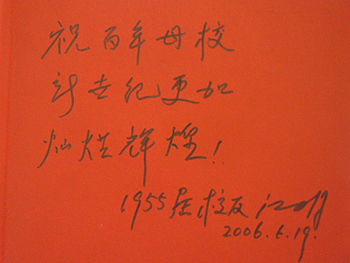 祝百年母校
新世纪更加
灿烂辉煌!
1955届校友
2006.5.19.